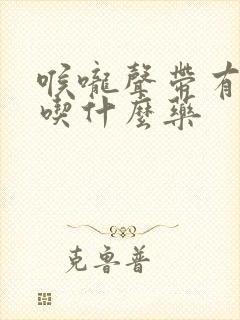 喉嚨聲帶有
喫什麼藥
克魯普